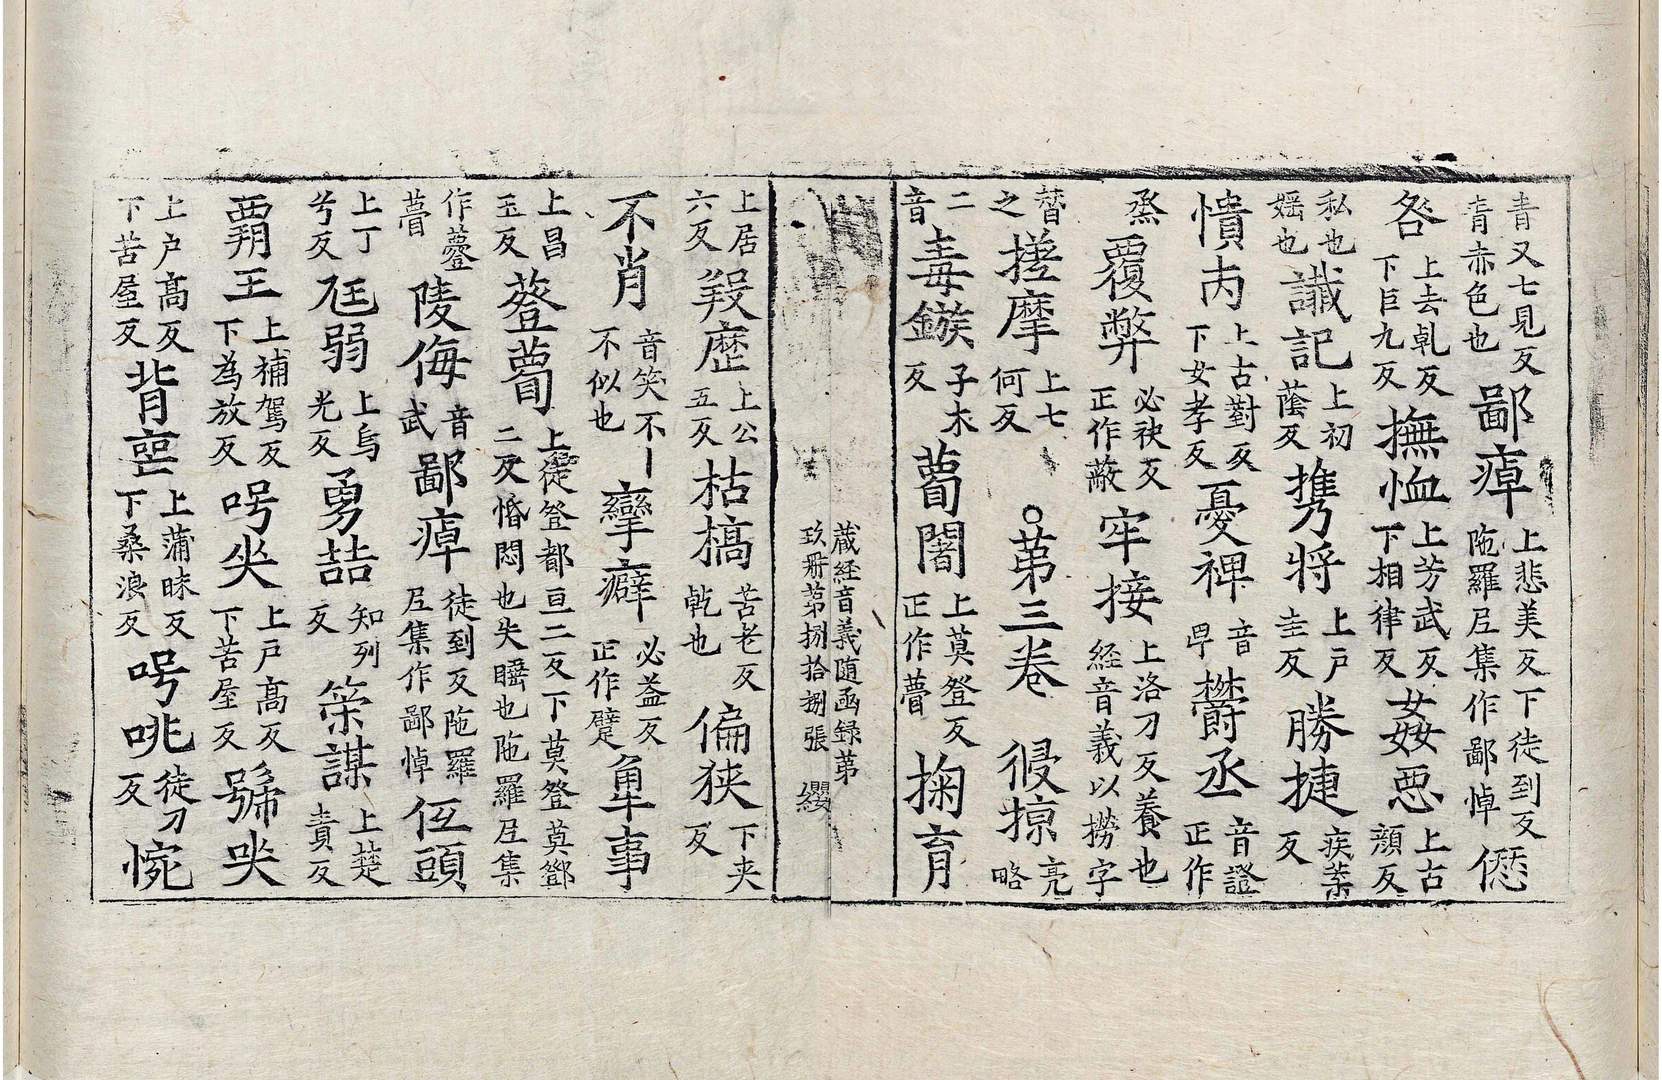 青又七見反青赤色也鄙㾕上悲美反下徒到反陁羅尼集作鄙悼僁
咎上去乹反下巨九反撫恤上芳武反下相律反姦惡上古顔反
私也婬也讖記上初蔭反携将上戸圭反勝捷疾葉反
憒𠕋上古對反下女孝反憂裨音卑欝丞音證正作
烝覆弊必袂反正作蔽牢接上洛刀反養也経音義以撈字
朁之搓摩上七何反○第三卷侵掠亮略
二音毒鏃子木反瞢闇上莫登反正作瞢掬育
蔵経音義随函録第
玖冊第捌拾捌張 纓
上居六反羖𦍩上公五反枯槁苦老反乾也偏狭下夹反
不肖音笑不丨不似也攣癖必益反正作躄犎事
上昌玉反蹬瞢上徒登都亘二反下莫登莫鄧二反惛悶也失𥈭也陁羅尼集
作䠬瞢陵侮音武鄙㾕徒到反陁羅尼集作鄙悼伍頭
上丁兮反尫弱上烏光反勇喆知列反䇿謀上楚責反
覇王上補駕反下為放反呺哭上戸高反下苦屋反號哭
上户高反下苦屋反背喪上蒲昧反下桑浪反呺咷徒刀反惋